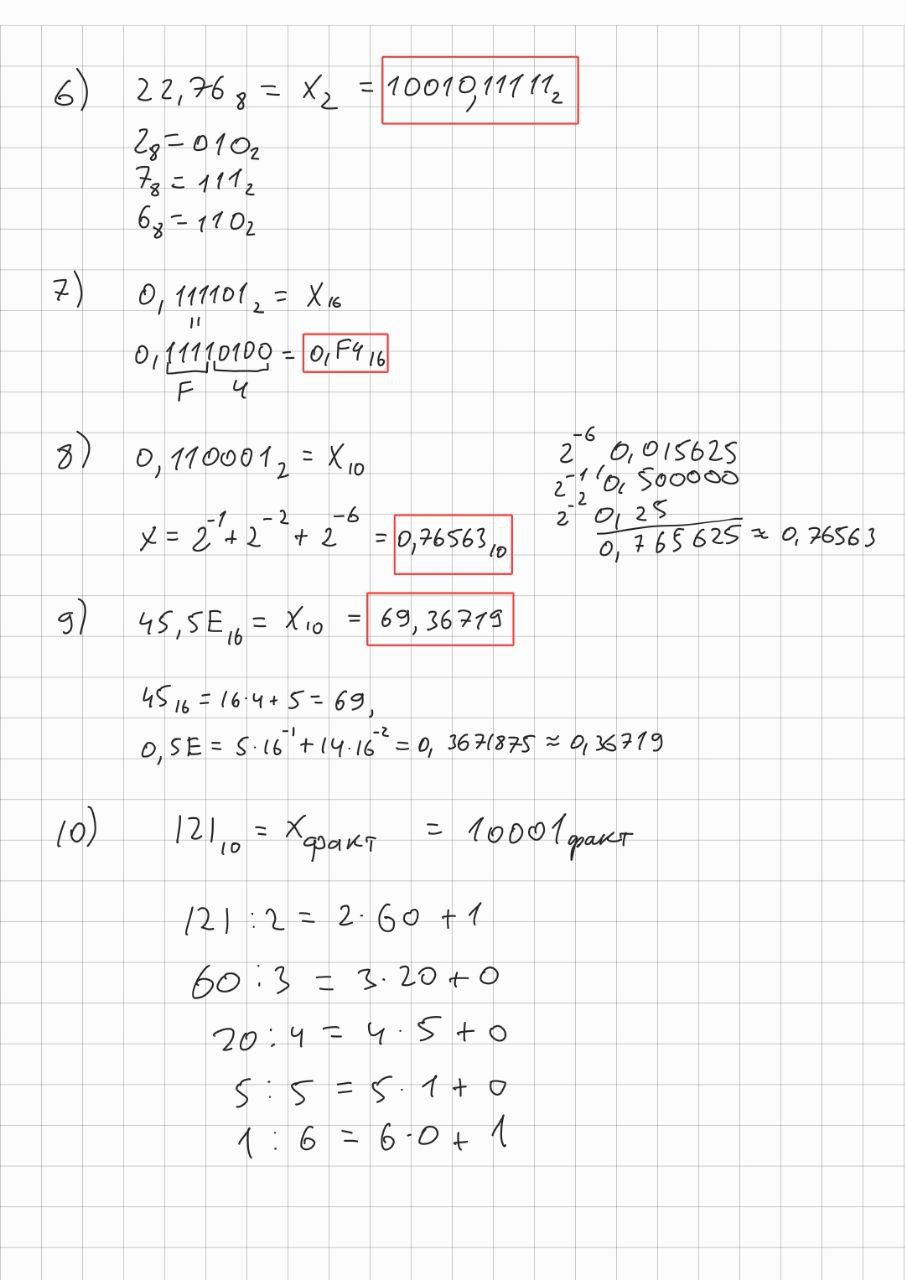 6) 22,76₈ = X₂ = 10010,11111₂
2₈ = 010₂
7₈ = 111₂
6₈ = 110₂
7) 0,111101₂ = X₁₆
"
0,11110100 = 0,F4₁₆
F 4
8) 0,110001₂ = X₁₀
X = 2⁻¹ + 2⁻² + 2⁻⁶ = 0,76563₁₀
2⁻⁶ 0,015625
2⁻¹ 0,500000
2⁻² 0,25
0,765625 ≈ 0,76563
9) 45,5E₁₆ = X₁₀ = 69,36719
45₁₆ = 16·4 + 5 = 69,
0,5E = 5·16⁻¹ + 14·16⁻² = 0,3671875 ≈ 0,36719
10) 121₁₀ = X факт = 10001 факт
121 : 2 = 2·60 + 1
60 : 3 = 3·20 + 0
20 : 4 = 4·5 + 0
5 : 5 = 5·1 + 0
1 : 6 = 6·0 + 1